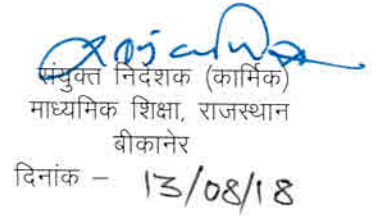 संयुक्त निदेशक (कार्मिक)
माध्यमिक शिक्षा, राजस्थान
बीकानेर
दिनांक – 13/08/18